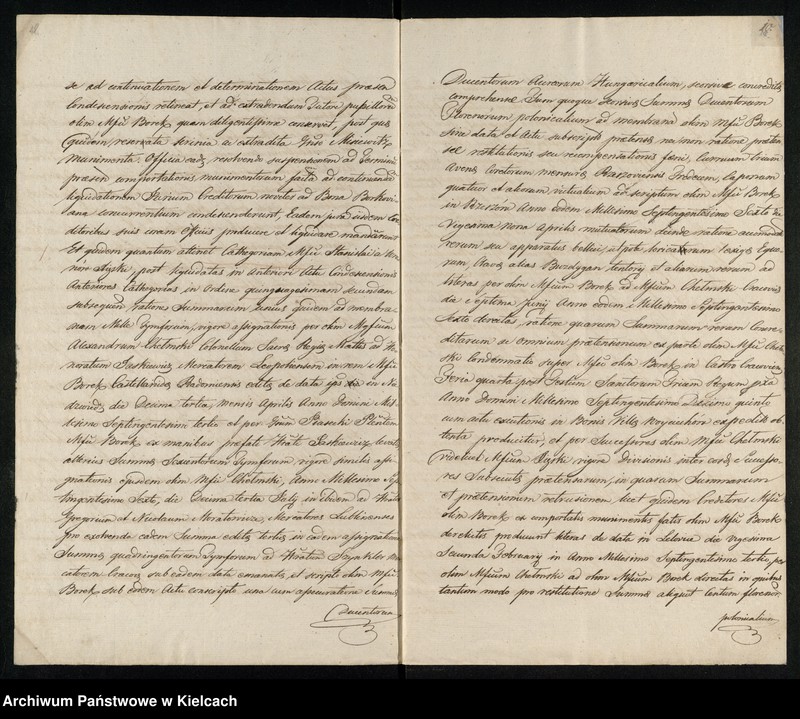 se ad continuationem et determinationem Actus præsen
Condescensionis retineat, et ad extradendum Tutori pupillorum
olim Mfci Borek quam diligentissime conservet, post quæ
quidem, reservata scrinia a extradita Gnso
munimenta. Officia resolvendo suspensionem ad Termini
præsen comportationis munimentorum facta ad continuandam
liquidationem Jurium Creditorum invites ad Bona
concurrentium condescenderunt, Eadem jura eisdem Cre
ditoribus suis coram Officiis producere et liquidare mandarunt
Et quidem quantum attinet Cathegoriam Mfci Stanislai a
post liquidatas in Anteriori Actu Condescensionis
Anteriores Cathegorias, in ordine quinquagesimam secundam
subsequen, ratione Summarum unius quidem ad membra
nam Mille Tymforum, vigore assignationis per olim Mgfcum
Alexandrum Chelmski Colonellum Sacræ Regiæ Mattis ad Ho
noratum Jaskiewicz Mercatorem Leopoliensem in rem Mfci
Borek Castellanidæ Radomiensis editæ de data
die Decima tertia, mensis Aprilis Anno Domini Mil
lesimo Septingentesimo tertio et per Gsum Piasecki Plenipotem
Mfci Borek ex manibus prefati Jaskiewicz levatæ
alterius Summæ Sexcentorum Tymforum vigore similis assi
gnationis ejusdem olim Mfci Chelmski, Anno Millesimo Sep
tingentesimo Sexto, die Decima tertia July ibidem ad
Gregorium et Nicolaum Mercatores Lublinenses
pro exolvenda eadem Summa editæ, tertiæ in eadem assignatione
Summæ quadringentorum Tymforum ad
catorem Cracov. sub eadem data emanatæ, et scripti olim Mfci
Borek, sub eodem Actu conscripti una cum assecuratione Summæ
Ducentorum
Ducentorum Aureorum Hungaricalium, scorsive concreditæ
comprehensæ Tum quoque Servus Summæ Ducentorum
Florenorum polonicalium ad membranam olim Mfci Borek
sine data et Actu subscripti prætensæ nec non ratione præten
sæ restitutionis seu recompensationis fæni, Curruum trium
Avenæ Coretorum mensuræ Rzeszoviensis Tredecim, Caponum
quatuor et aliorum victualium ad scriptum olim Mfci Borek
in Rzeszow Anno eodem Millesimo Septingentesimo Sexto die
Vigesima nona Aprilis mutuatorum deinde ratione accomodatarum
rerum seu apparatus bellici, utpote loricarum
rum, Clavæ alias Buzdygan tentorij et aliarum rerum ad
literas per olim Mfcum Borek ad Mfcum Chelmski Cracoviæ
die septima Junij Anno eodem Millesimo Septingentesimo
Sexto directas, ratione quarum Summarum rerum Concre
ditarum ac omnium prætensionum ex parte olim Mfci Chelm
ski Condemnatio super Mfco olim Borek in Castro Cracovien
Feria quarta post Festum Sanctorum Trium Regum pxa
Anno Domini Millesimo Septingentesimo Decimo quinto
cum actu executionis in Bonis Villæ Wymuchow expedito ob
tenta producitur, et per Successores olim Mfci Chelmski
videlicet Mfcum vigore Divisionis inter
res Subsecutæ prætensarum, in quarum Summarum
et prætensionum retrusionem licet quidem Creditores Mfci
olim Borek ex comportatis munimentis fatis olim Mfci Borek
derelictis producunt literas de data in Selovia die Vigesima
Secunda February in Anno Millesimo Septingentesimo tertio, per
olim Mfcum Chelmski ad olim Mfcum Borek directas in quibus
tantum modo pro restitutione Summæ aliquot Centum florenorum
polonicalium
Archiwum Państwowe w Kielcach